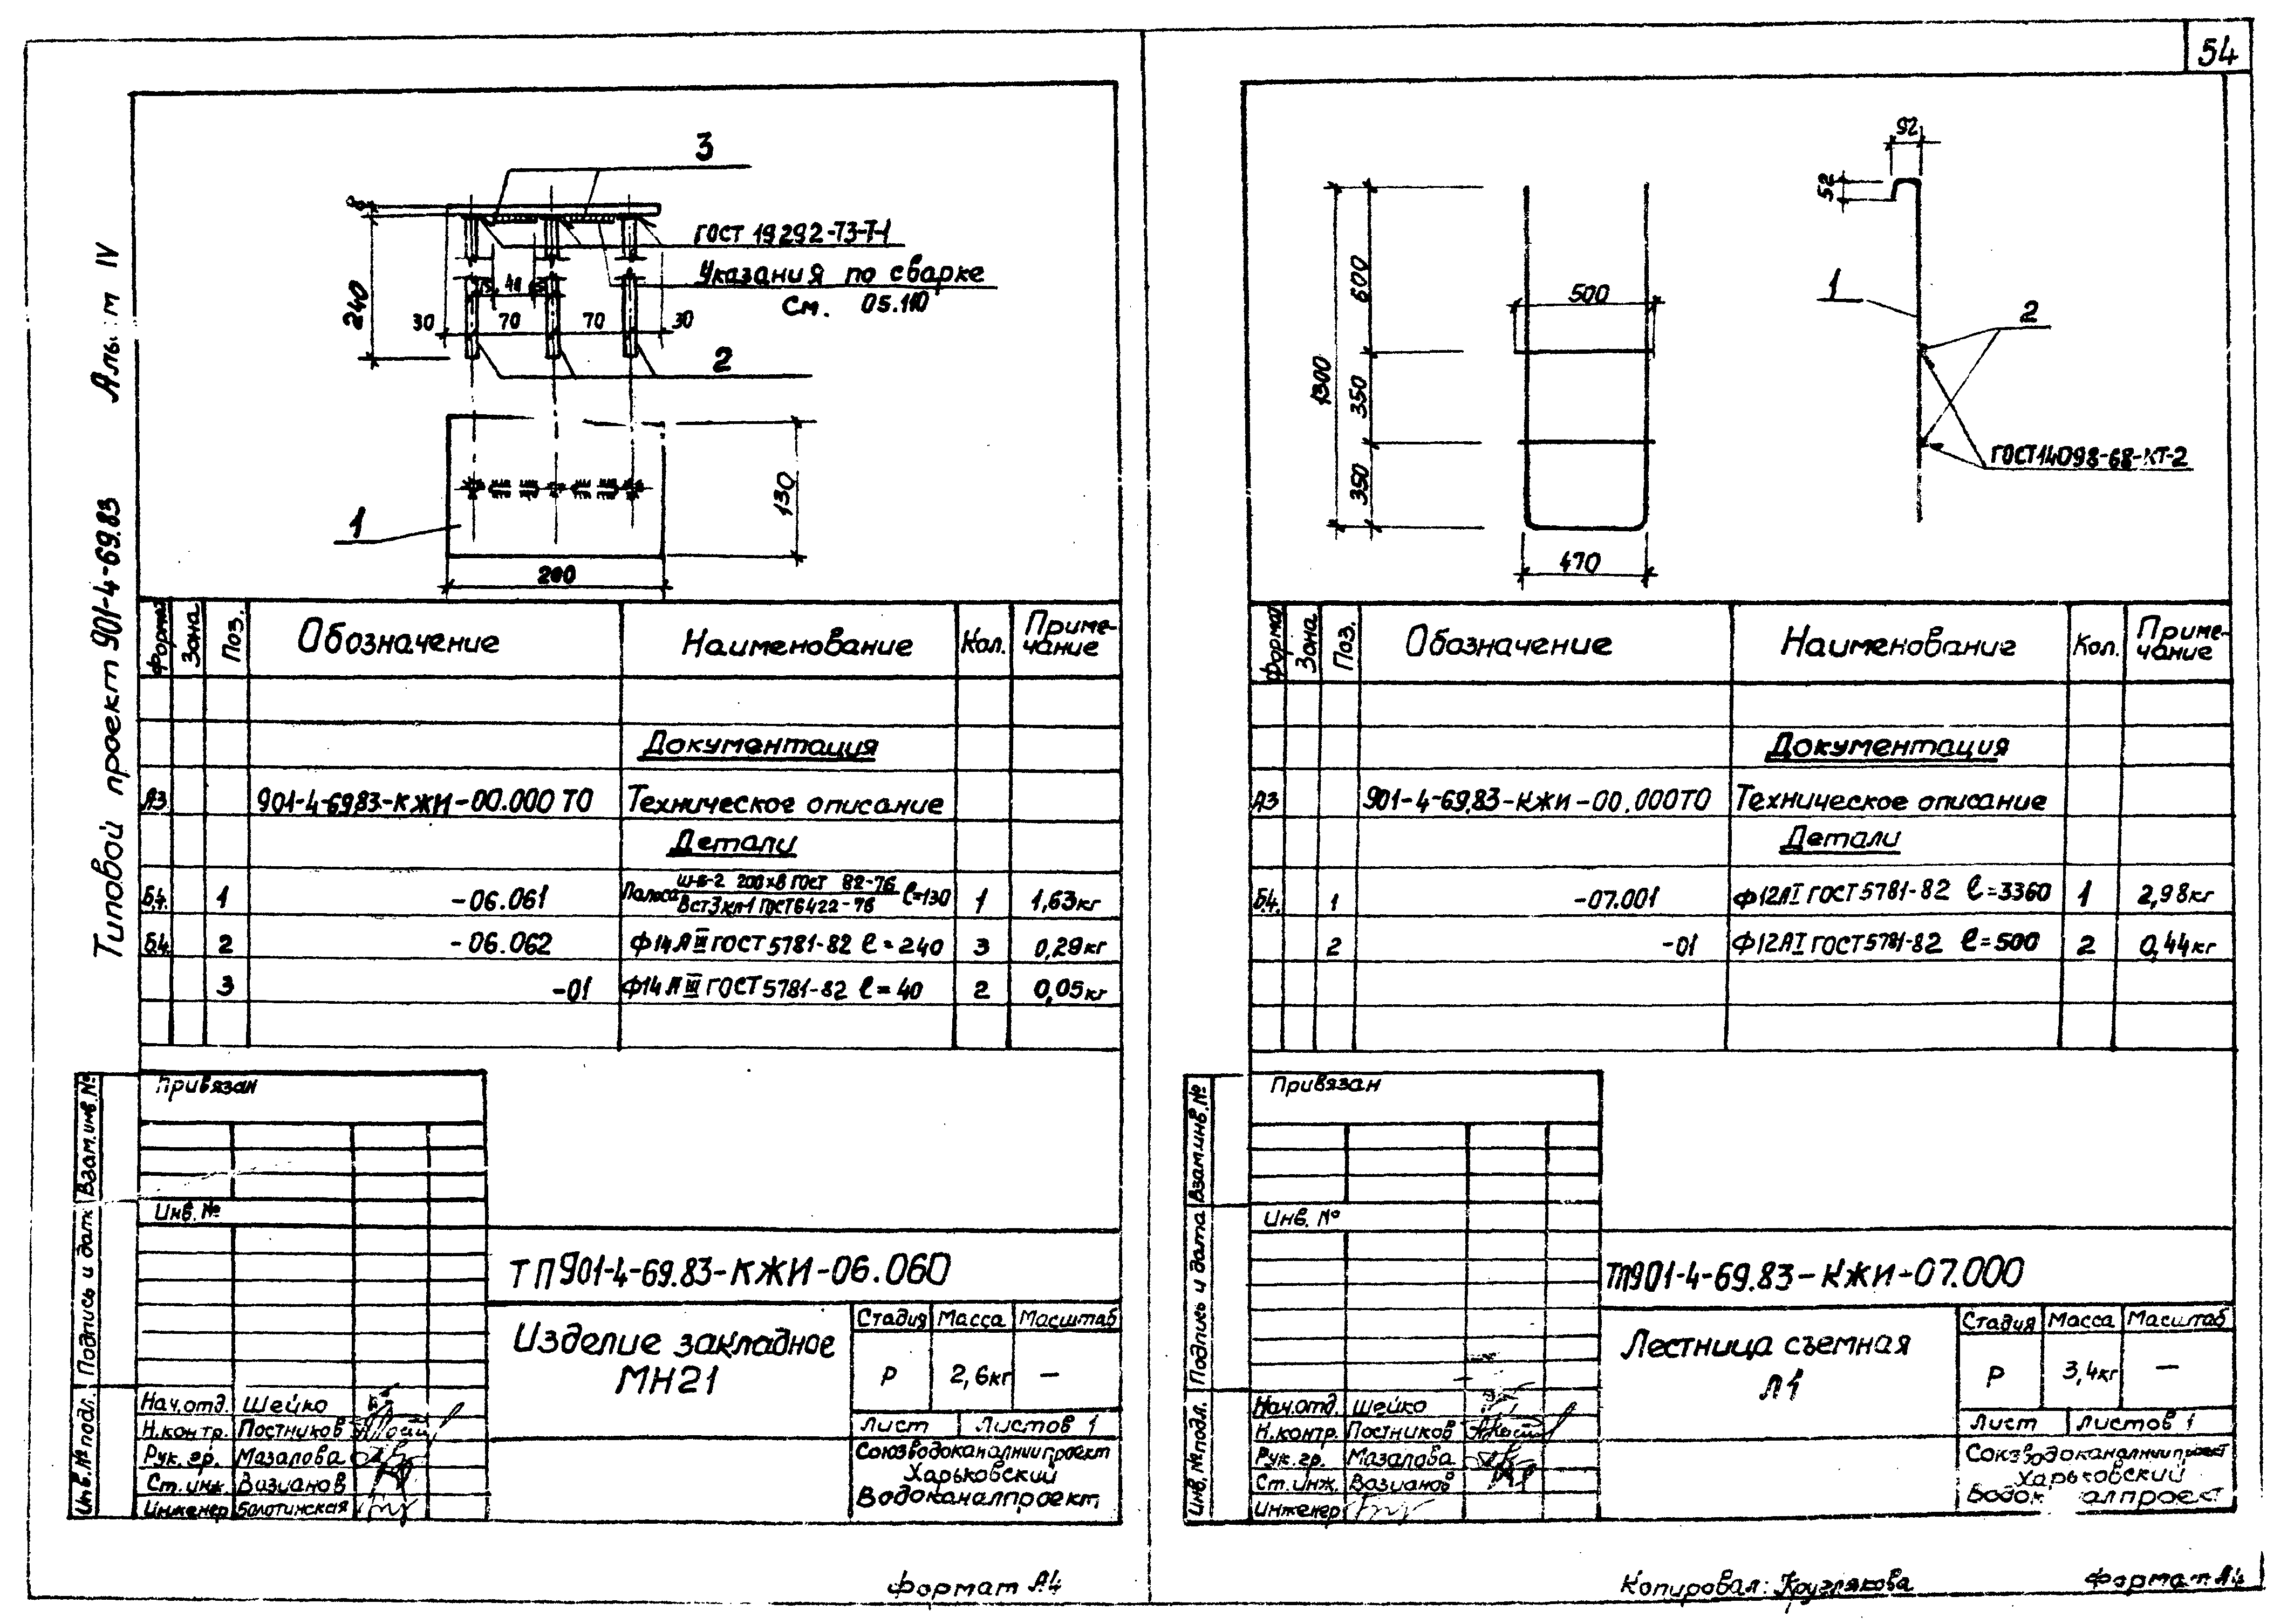 54
Типовой проект 901-4-69.83
3
ГОСТ 19292-73-Т-1
Указания по сварке
см. 05.110
8
240
40
30 70 70 30
2
130
1
200
Формат Зона Поз. Обозначение Наименование Кол. Приме-
чание
Документация
А3 901-4-69.83-КЖИ-00.000 ТО Техническое описание
Детали
Б.4. 1 -06.061 Полоса ш-б-2 200х8 ГОСТ 82-76 ℓ=130 1 1,63кг
Вст3кп-1 ГОСТ6422-76
Б.4. 2 -06.062 Ф14АIII ГОСТ 5781-82 ℓ=240 3 0,29кг
3 -01 Ф14АIII ГОСТ 5781-82 ℓ=40 2 0,05кг
Привязан
Инв. №
Взам.инв.№
Подпись и дата
Инв.№ подл.
ТП901-4-69.83-КЖИ-06.060
Изделие закладное
МН21
Стадия Масса Масштаб
Р 2,6кг —
Лист Листов 1
Союзводоканалниипроект
Харьковский
Водоканалпроект
Нач.отд. Шейко
Н.контр. Постников
Рук.гр. Мазалова
Ст.инж. Вазианов
Инженер Болотинская
Формат А4
92
52
1
2
ГОСТ14098-68-КТ-2
1300
600
350
350
500
470
Формат Зона Поз. Обозначение Наименование Кол. Приме-
чание
Документация
А3 901-4-69.83-КЖИ-00.000ТО Техническое описание
Детали
Б.4. 1 -07.001 Ф12АI ГОСТ 5781-82 ℓ=3360 1 2,98кг
2 -01 Ф12АI ГОСТ 5781-82 ℓ=500 2 0,44кг
Привязан
Инв. №
Взам.инв.№
Подпись и дата
Инв.№подл.
ТП901-4-69.83-КЖИ-07.000
Лестница съемная
Л1
Стадия Масса Масштаб
Р 3,4кг —
Лист Листов 1
Союзводоканалниипроект
Харьковский
Нач.отд. Шейко
Н.контр. Постников
Рук.гр. Мазалова
Ст.инж. Вазианов
Инженер
Копировал: Круглякова
Формат А4